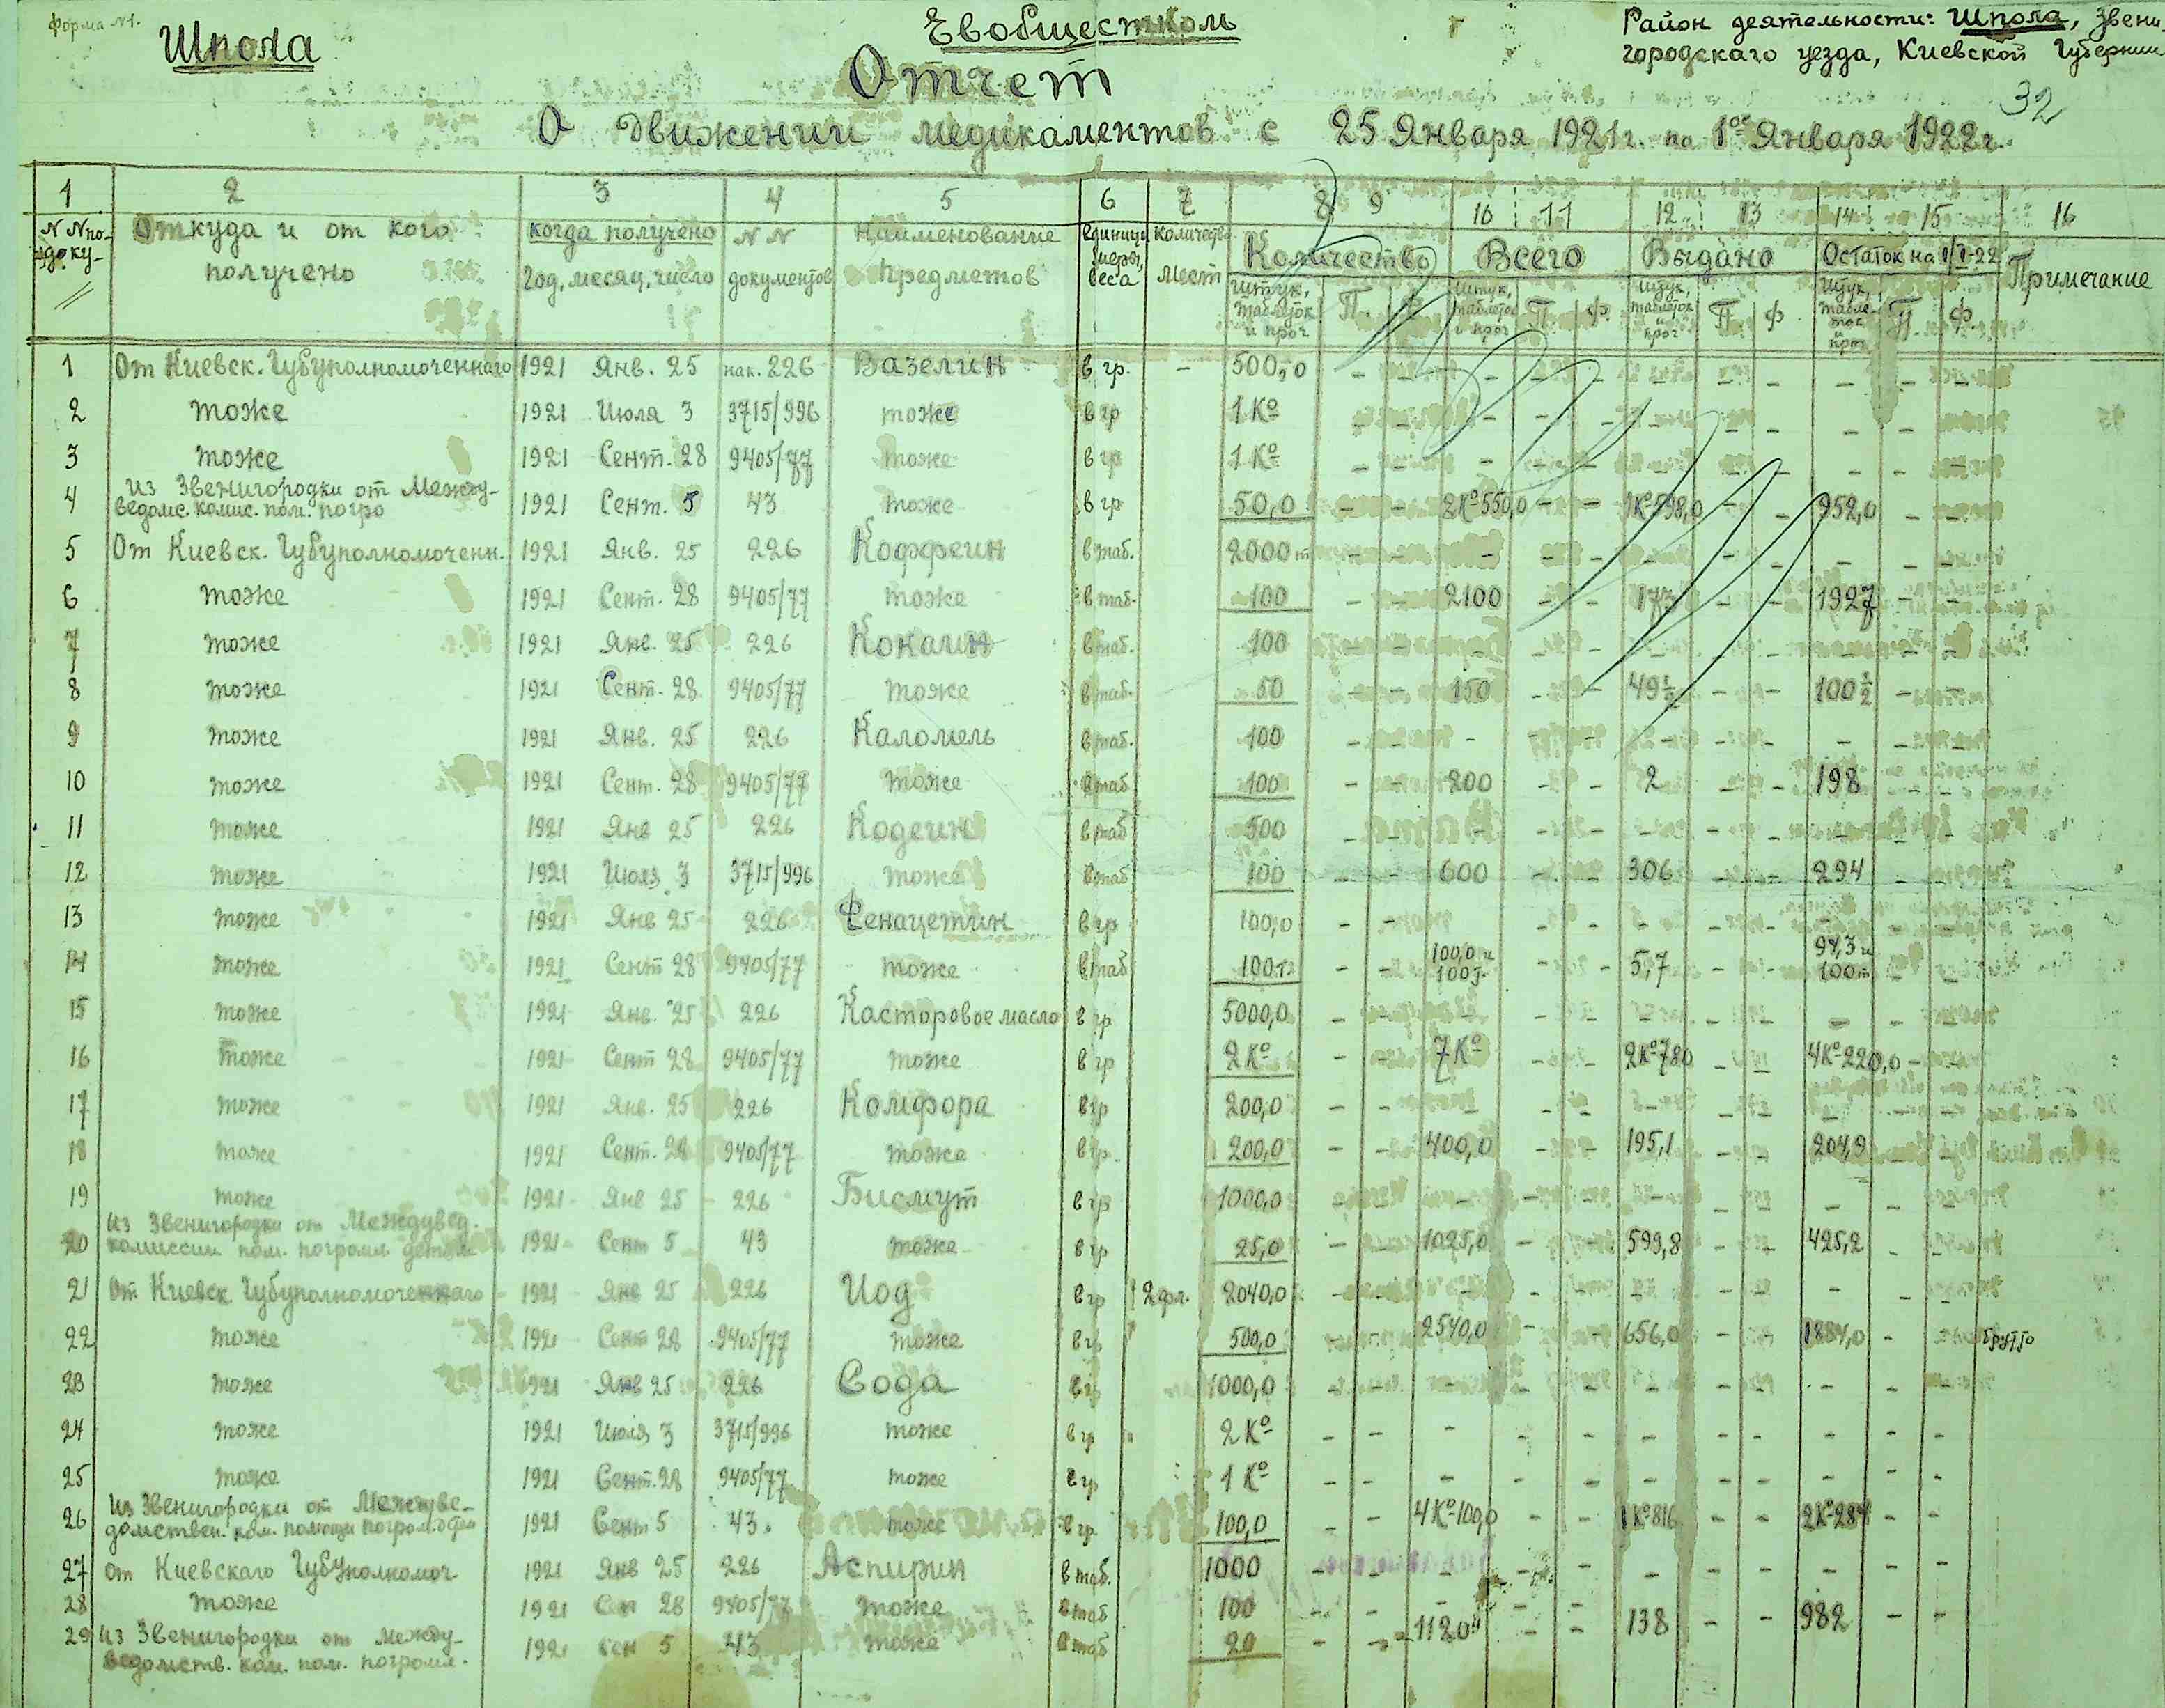 Форма №1.
Шпола
Евобщестком
Район деятельности: Шпола, Звени-
городскаго уезда, Киевской Губернии
32
Отчет
О движении медикаментов с 25 Января 1921 г. по 1ое Января 1922 г.
1 2 3 4 5 6 7 8 9 10 11 12 13 14 15 16
N Nпо- Откуда и от кого когда получено N N Наименование единицы Количество Количество Всего Выдано Остаток на 1/I-22 Примечание
доку- получено Год, месяц, число документов предметов меры, веса мест
штук, таблеток и проч П. Ф. штук, таблеток и проч П Ф. штук, таблеток и проч П Ф штук, табле- ток и проч П Ф.
1 От Киевск. Губуполномоченнаго 1921 Янв. 25 нак. 226 Вазелин в гр. - 500,0 - - - - - - - - - - -
2 тоже 1921 Июля 3 3715/996 тоже в гр 1 Ко - - - - - - - - - - -
3 тоже 1921 Сент. 28 9405/77 тоже в гр 1 Ко - - - - - - - - - - -
4 Из Звенигородки от Между-
ведомс. комис. пом. погро 1921 Сент. 5 43 тоже в гр 50,0 - - 2Ко550,0 - - 1Ко598,0 - - 952,0 - -
5 От Киевск. Губуполномоченн. 1921 Янв. 25 226 Коффеин в таб. 2000 т - - - - - - - - - - -
6 тоже 1921 Сент. 28 9405/77 тоже в таб. 100 - - 2100 - - 173 - - 1927 - -
7 тоже 1921 Янв. 25 226 Кокаин в таб. 100 - - - - - - - - - - -
8 тоже 1921 Сент. 28 9405/77 тоже в таб. 50 - - 150 - - 49½ - - 100½ - -
9 тоже 1921 Янв. 25 226 Каломель в таб. 100 - - - - - - - - - - -
10 тоже 1921 Сент. 28 9405/77 тоже в таб 100 - - 200 - - 2 - - 198 - -
11 тоже 1921 Янв 25 226 Кодеин в таб 500 - - - - - - - - - - -
12 тоже 1921 Июля 3 3715/996 тоже в таб 100 - - 600 - - 306 - - 294 - -
13 тоже 1921 Янв 25 226 Фенацетин в гр 100,0 - - - - - - - - - - -
14 тоже 1921 Сент 28 9405/77 тоже в таб 100 т - - 100,0 и 100 т. - - 5,7 - - 94,3 и 100 т - -
15 тоже 1921 Янв. 25 226 Касторовое масло в гр 5000,0 - - - - - - - - - - -
16 тоже 1921 Сент 28 9405/77 тоже в гр 2 Ко - - 7 Ко - - 2Ко780 - - 4Ко-220,0 - -
17 тоже 1921 Янв. 25 226 Комфора в гр 200,0 - - - - - - - - - - -
18 тоже 1921 Сент. 28 9405/77 тоже в гр. 200,0 - - 400,0 - - 195,1 - - 204,9 - -
19 тоже 1921 Янв 25 226 Бисмут в гр 1000,0 - - - - - - - - - - -
20 Из Звенигородки от Междувед.
комиссии пом. погромл. детям 1921 Сент 5 43 тоже в гр 25,0 - - 1025,0 - - 599,8 - - 425,2 - -
21 От Киевск Губуполномоченнаго 1921 Янв 25 226 Иод в гр 2 фл. 2040,0 - - - - - - - - - - -
22 тоже 1921 Сент 28 9405/77 тоже в гр 500,0 2540,0 - - 656,0 - - 1884,0 - - брутто
23 тоже 1921 Янв 25 226 Сода в гр 1000,0 - - - - - - - - - - -
24 тоже 1921 Июля 3 3715/996 тоже в гр 2 Ко - - - - - - - - - - -
25 тоже 1921 Сент. 28 9405/77 тоже в гр 1 Ко - - - - - - - - - - -
26 Из Звенигородки от Междуве-
домствен. ком. помощи погром. 1921 Сент 5 43. тоже в гр. 100,0 - - 4 Ко-100,0 - - 1 Ко816 - - 2Ко284 - -
27 от Киевскаго Губуполномоч. 1921 Янв 25 226 Аспирин в таб. 1000 - - - - - - - - - - -
28 тоже 1921 Сен 28 9405/77 тоже в таб 100 - - - - - - - - - - -
29 Из Звенигородки от между-
ведомств. ком. пом. погромл. 1921 сен 5 43 тоже в таб 20 - - 1120 - - 138 - - 982 - -